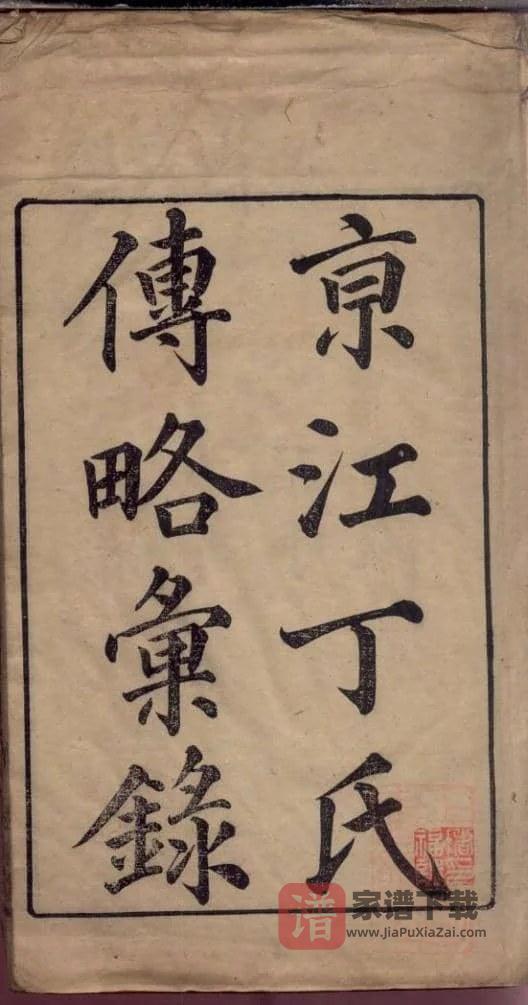 京江丁氏
傳略彙錄
谱 家谱下载
www.JiaPuXiaZai.com